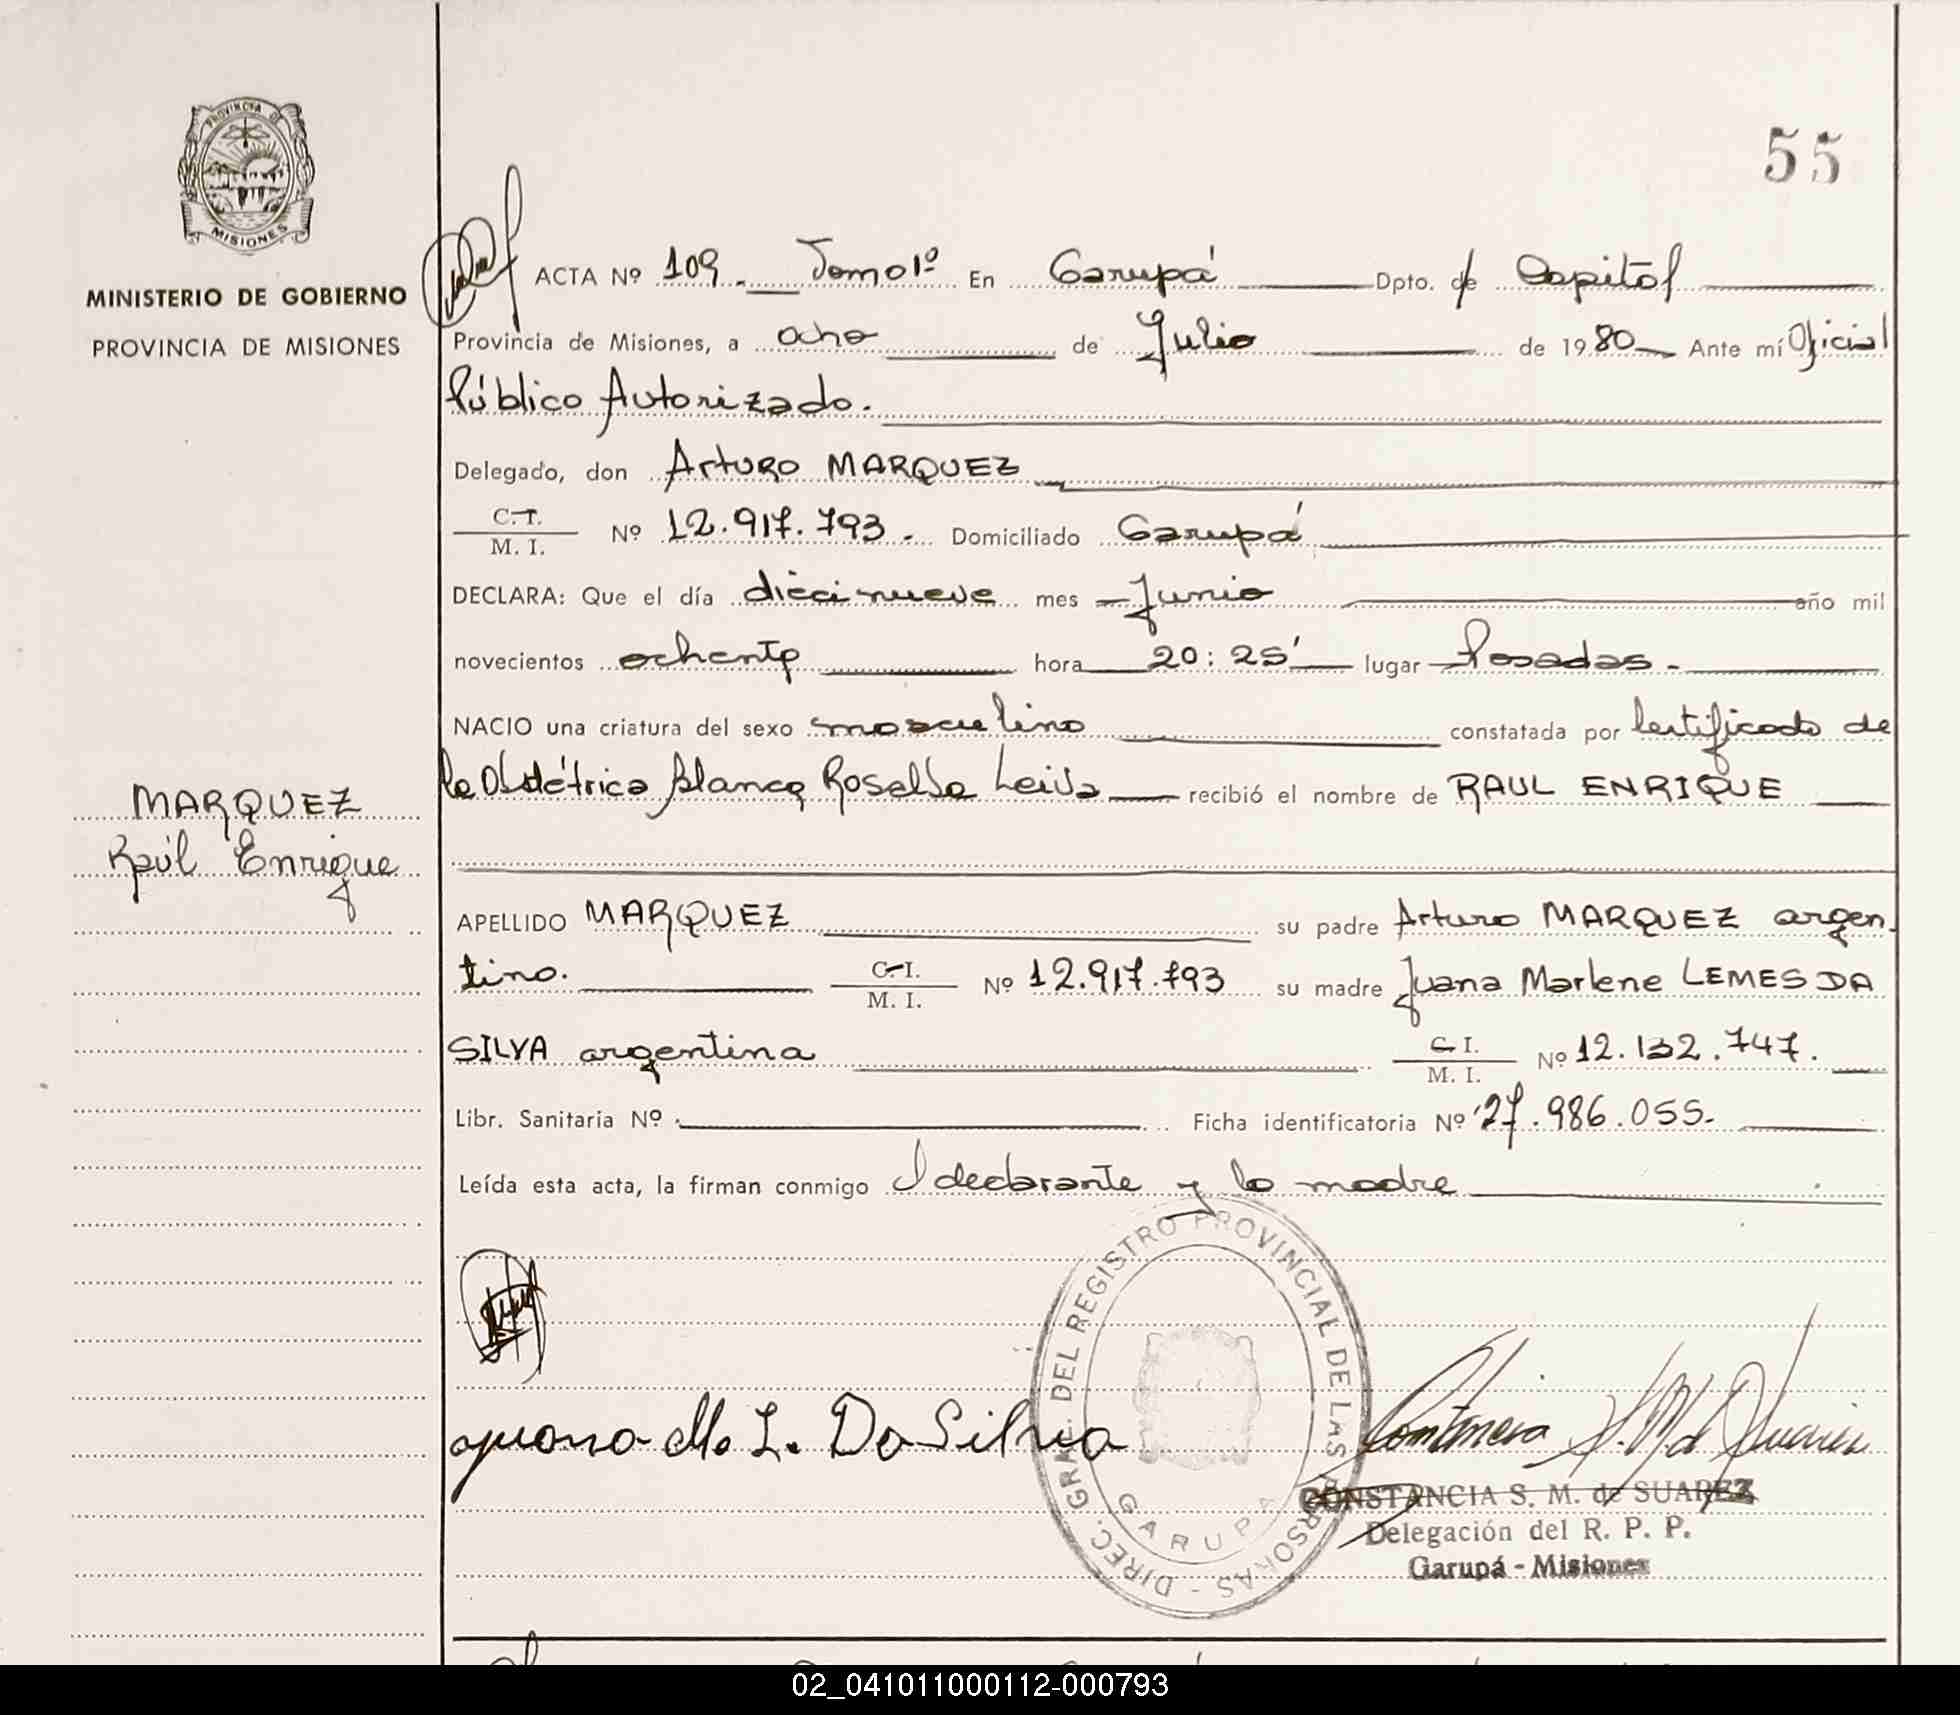 PROVINCIA DE
MISIONES
MINISTERIO DE GOBIERNO
PROVINCIA DE MISIONES
MARQUEZ
Raúl Enrique
55
ACTA Nº 109. Tomo 1º En Garupá Dpto. de Capital
Provincia de Misiones, a ocho de Julio de 1980 Ante mí Oficial
Público Autorizado.
Delegado, don Arturo MARQUEZ
C. I.
M. I. Nº 12.917.793. Domiciliado Garupá
DECLARA: Que el día diecinueve mes Junio año mil
novecientos ochenta hora 20:25' lugar Posadas.
NACIO una criatura del sexo masculino constatada por Certificado de
la Obstétrica Blanca Rosalba Leiva recibió el nombre de RAUL ENRIQUE
APELLIDO MARQUEZ su padre Arturo MARQUEZ argen
tino. C. I. M. I. Nº 12.917.793 su madre Juana Marlene LEMES DA
SILVA argentina C. I. M. I. Nº 12.132.747.
Libr. Sanitaria Nº Ficha identificatoria Nº 27.986.055.
Leída esta acta, la firman conmigo el declarante y la madre
Juana M. L. Da Silva
DIREC. GRAL. DEL REGISTRO PROVINCIAL DE LAS PERSONAS -
GARUPA
CONSTANCIA S. M. de SUAREZ
Delegación del R. P. P.
Garupá - Misiones
02_041011000112-000793